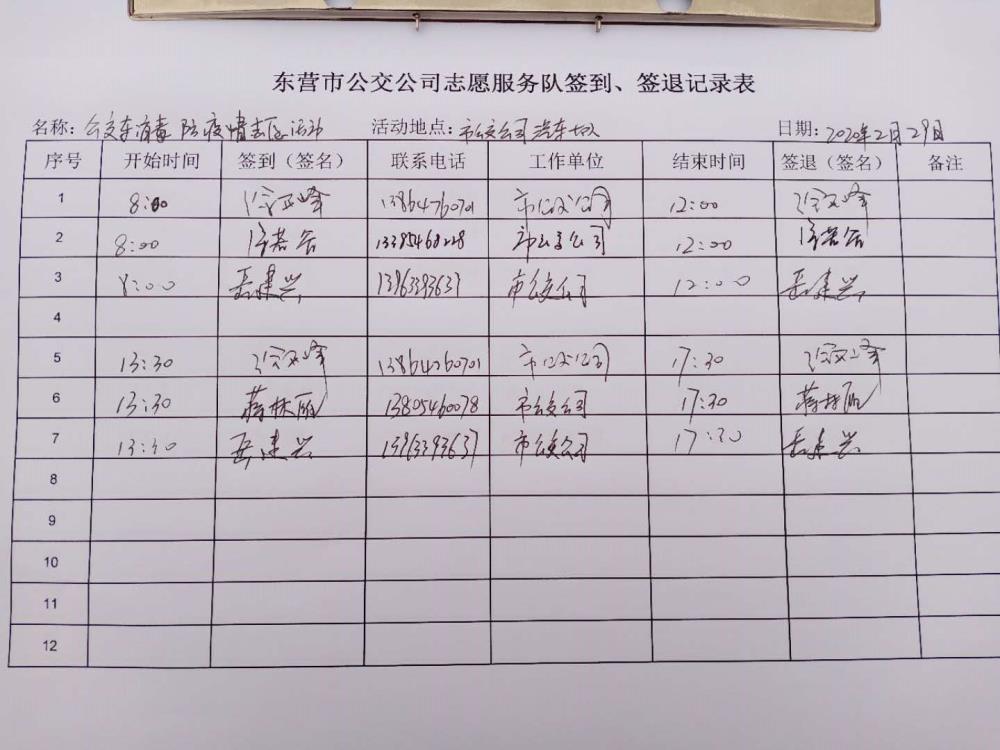 东营市公交公司志愿服务队签到、签退记录表
名称：公交车消毒 防疫情志愿活动 活动地点：市公交公司汽车 日期：2020年2月29日
序号 开始时间 签到（签名） 联系电话 工作单位 结束时间 签退（签名） 备注
1 8:00 峰 13864760701 市公交公司 12:00 峰
2 8:00 13385468228 市公交公司 12:00
3 8:00 岳建兴 市公交公司 12:00 岳建兴
4
5 13:30 峰 13864760701 市公交公司 17:30 峰
6 13:30 蒋林丽 13805460078 市公交公司 17:30 蒋林丽
7 13:30 岳建兴 市公交公司 17:30 岳建兴
8
9
10
11
12